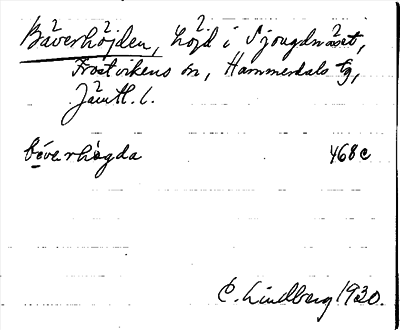 Bäverhöjden, höjd i Sjougdnäset,
Frostvikens sn, Hammerdals tg,
Jämtl. l.
bo̱verhøgda 468c
C. Lindberg 1930.